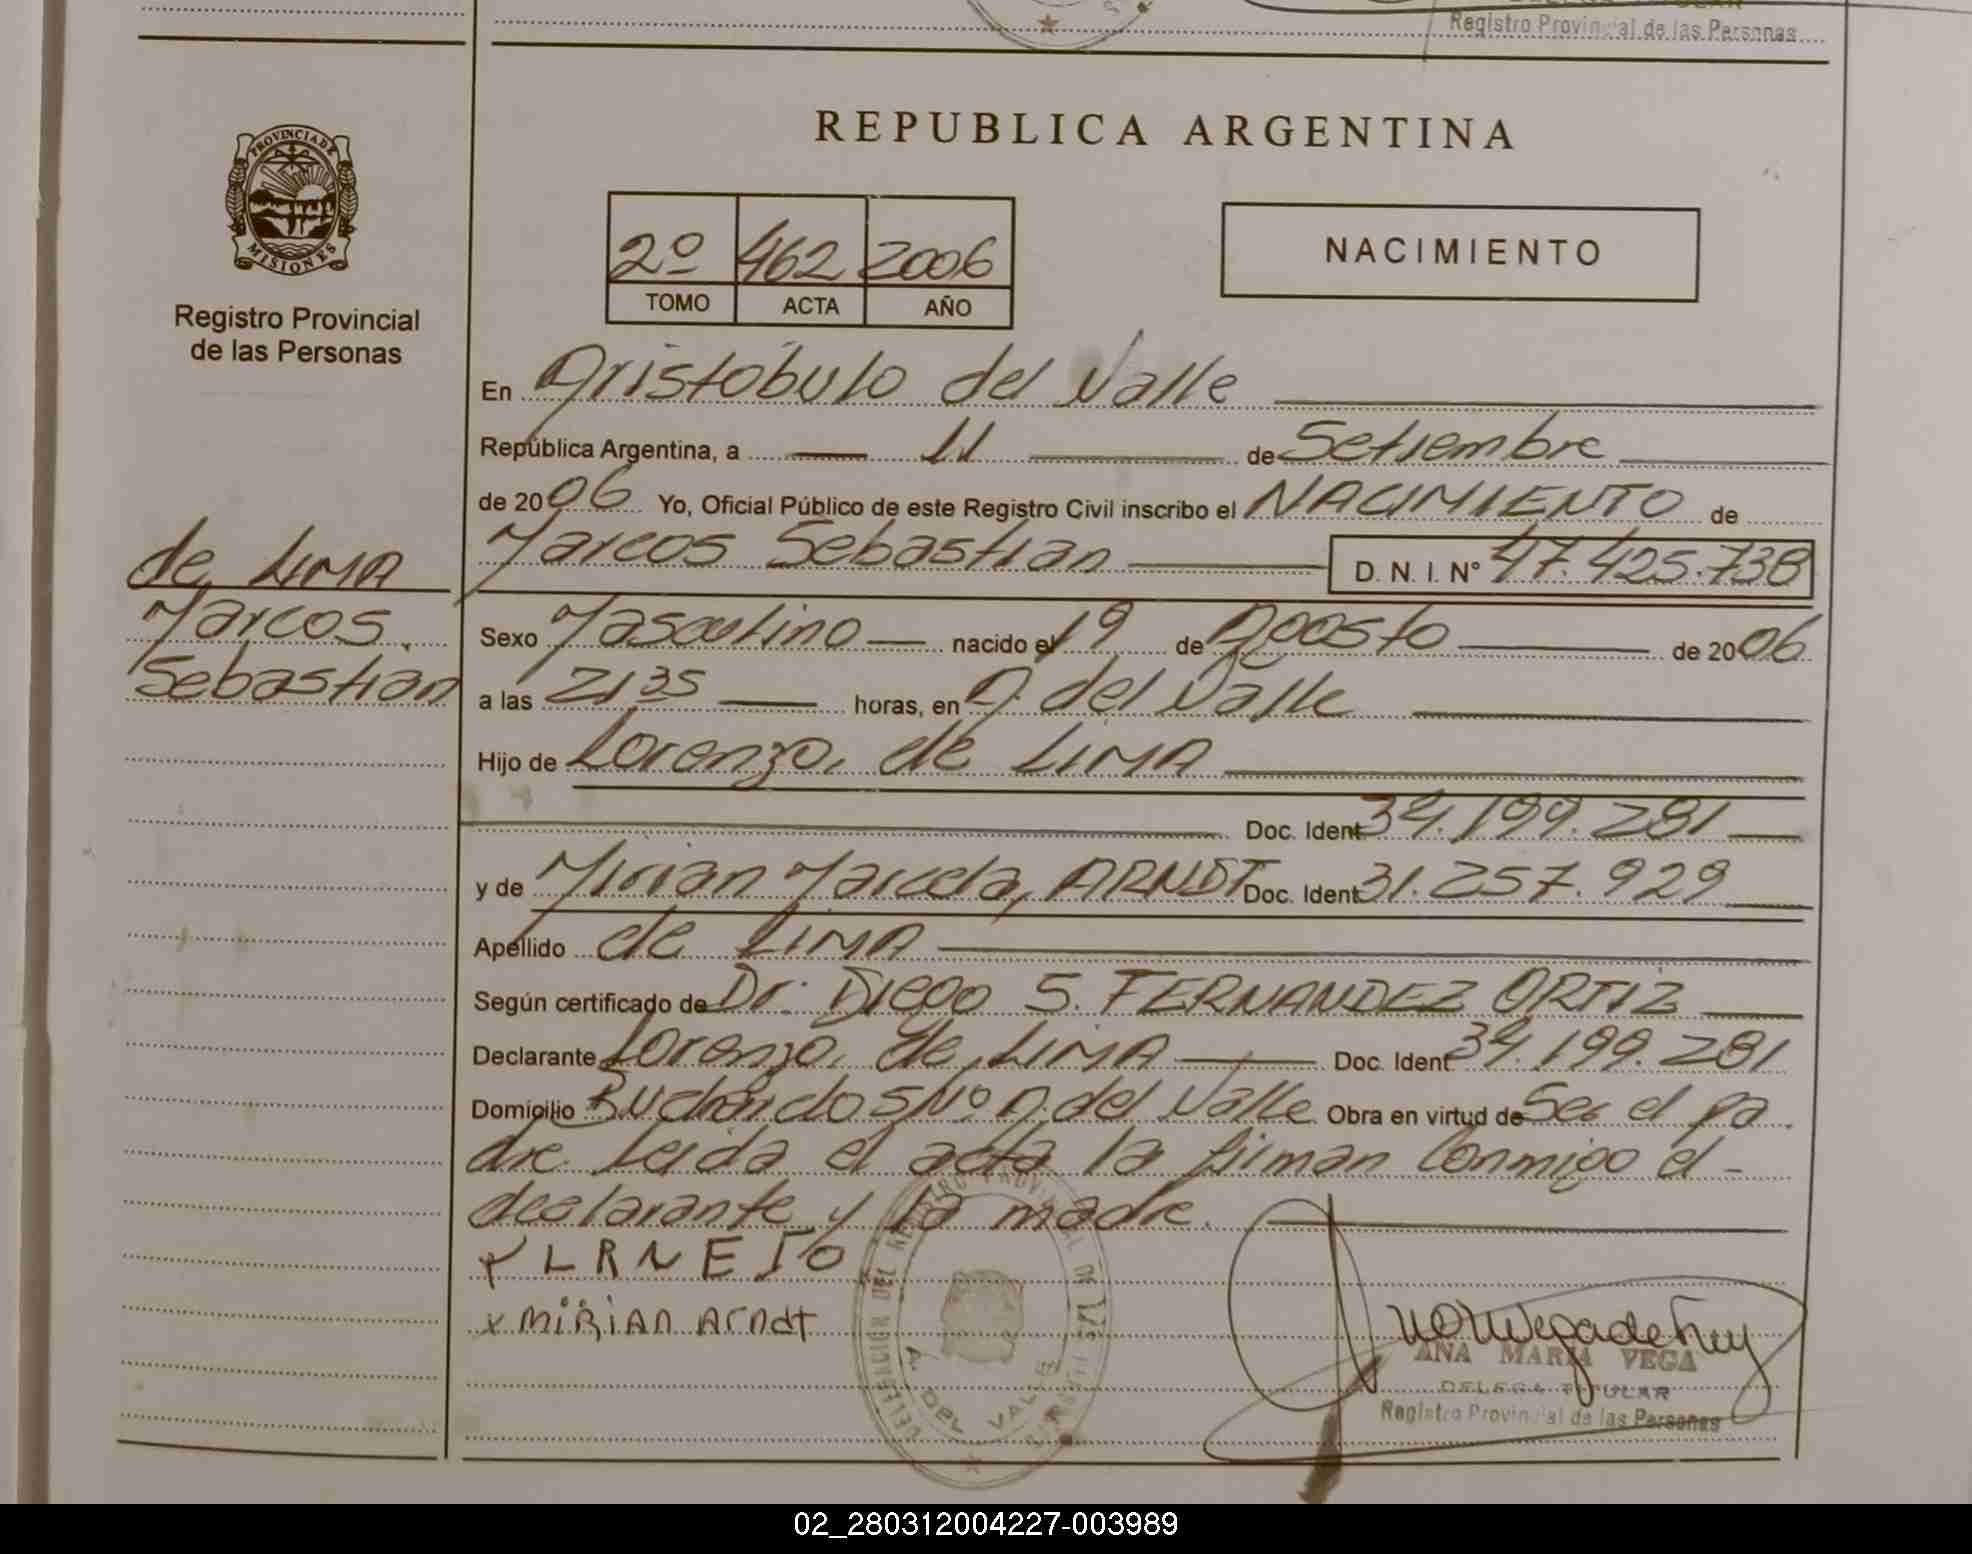 Registro Provincial de las Personas
PROVINCIA DE
MISIONES
Registro Provincial
de las Personas
REPUBLICA ARGENTINA
2º 462 2006
TOMO ACTA AÑO
NACIMIENTO
En Aristóbulo del Valle
República Argentina, a 11 de Setiembre
de 2006 Yo, Oficial Público de este Registro Civil inscribo el NACIMIENTO de
Marcos Sebastian D. N. I. Nº 47.425.738
de LIMA
Marcos
Sebastian
Sexo Masculino nacido el 19 de Agosto de 2006
a las 21 35 horas, en A. del Valle
Hijo de Lorenzo, de LIMA
Doc. Ident 34.199.281
y de Mirian Marcela, ARNDT Doc. Ident 31.257.929
Apellido de LIMA
Según certificado de Dr. Diego S. FERNANDEZ ORTIZ
Declarante Lorenzo, de LIMA Doc. Ident 34.199.281
Domicilio Buchardo S/Nº A. del Valle Obra en virtud de Ser el pa
dre Leida el acta la firman Conmigo el
declarante y la madre.
x LRNEIO
x MIRIAN Arndt
DELEGACIÓN DEL REGISTRO PROVINCIAL DE LAS PERSONAS
A. DEL VALLE
ANA MARIA VEGA
DELEGA TITULAR
Registro Provincial de las Personas
02_280312004227-003989